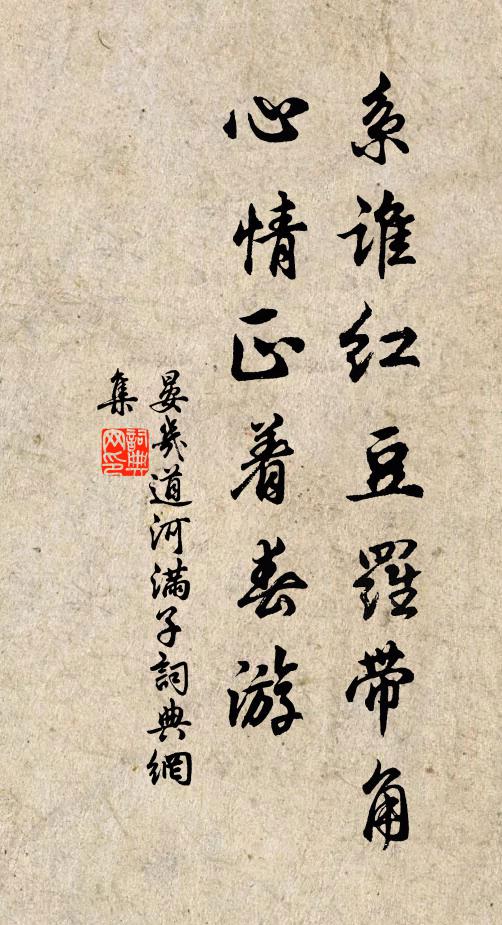 系谁红豆羅带角
心情正着春游
晏幾道河满子詞典網
集
詞典网印